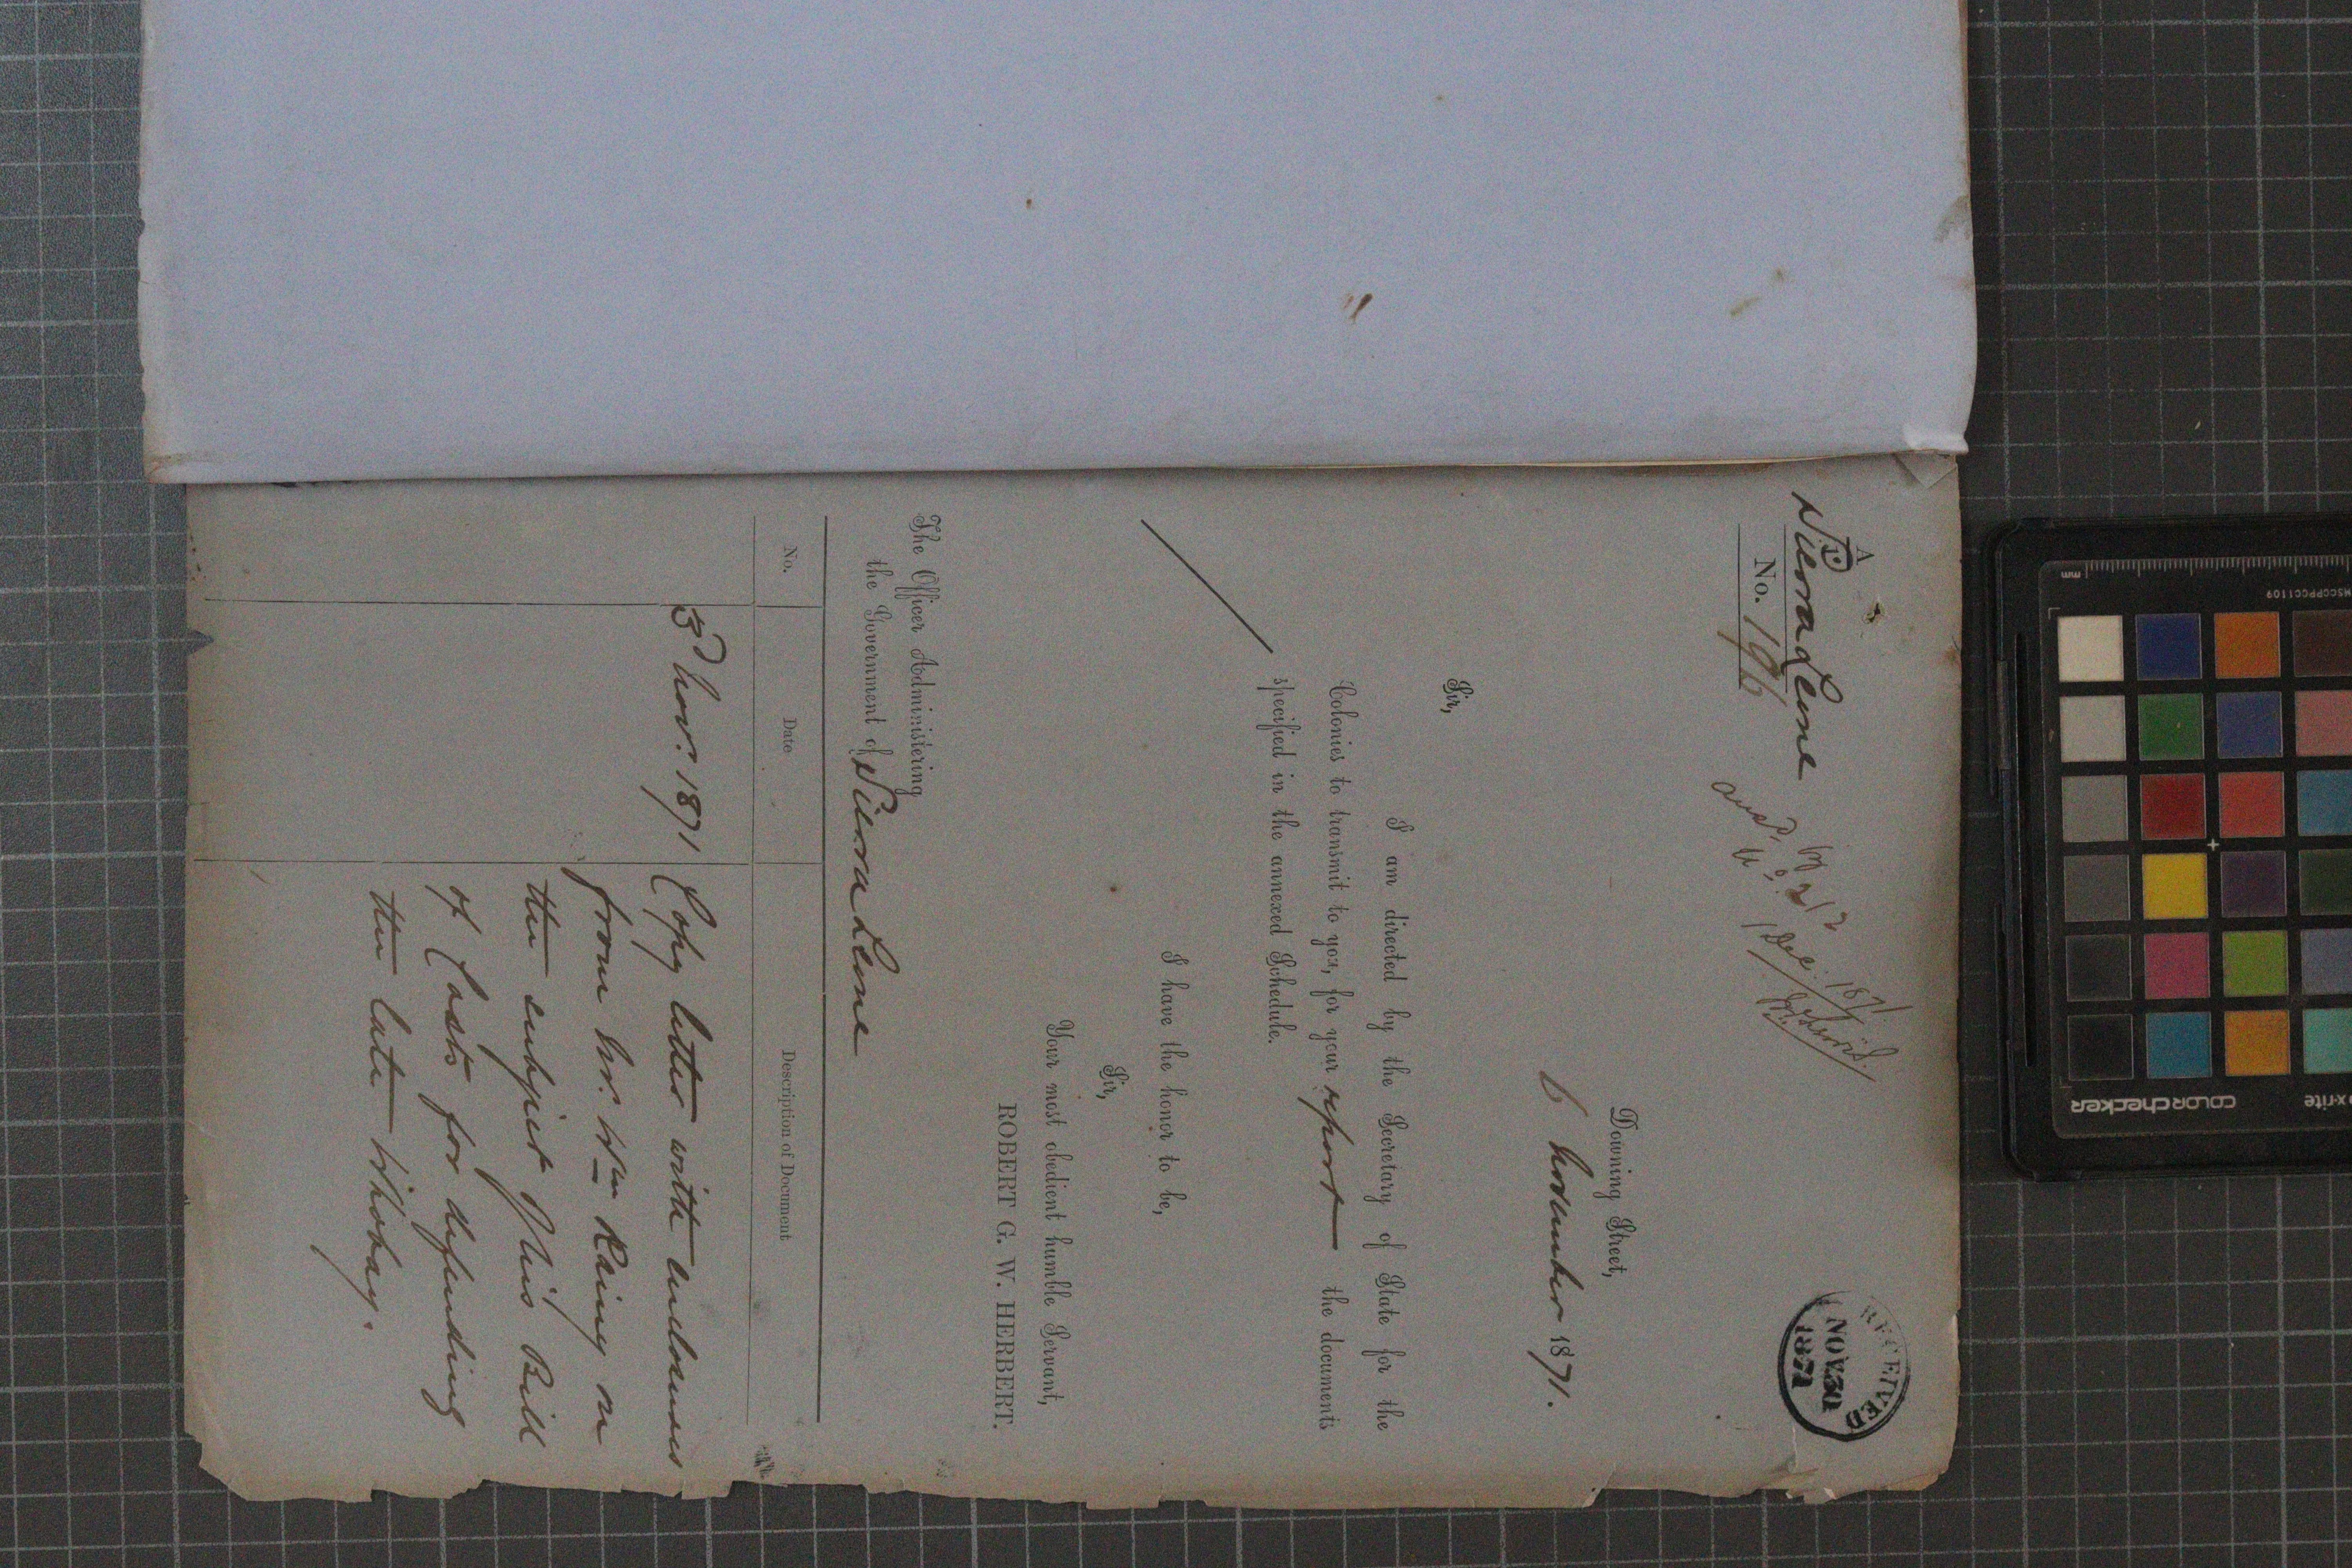 A
Sierra Leone
No. 196
Ansd. by No. 212
1 Dec. 1871
RECEIVED
NOV 30
1871
Downing Street,
6 November 1871.
Sir,
I am directed by the Secretary of State for the
Colonies to transmit to you, for your report the documents
specified in the annexed Schedule.
I have the honor to be,
Sir,
Your most obedient humble Servant,
ROBERT G. W. HERBERT.
The Officer Administering
the Government of Sierra Leone
No. Date Description of Document
3d Nov. 1871 Copy letter with enclosures
from Mr. Wm Rainy on
the subject of his Bill
of Costs for defending
the late
mm
MSCCPPCC1109
x-rite
colorchecker